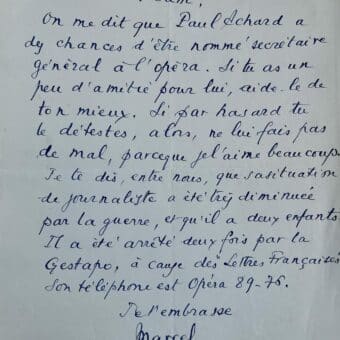 On me dit que Paul Achard a
des chances d'être nommé secrétaire
général à l'opéra. Si tu as un
peu d'amitié pour lui, aide-le de
ton mieux. Si par hasard tu
le détestes, alors, ne lui fais pas
de mal, parceque je l'aime beaucoup.
Je te dis, entre nous, que sa situation
de journaliste a été très diminuée
par la guerre, et qu'il a deux enfants.
Il a été arrêté deux fois par la
Gestapo, à cause des Lettres Françaises
Son téléphone est Opéra 89-76.
Je t'embrasse
Marcel